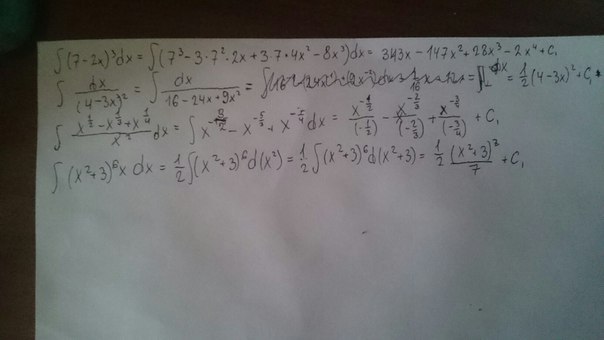 ∫(7-2x)³dx = ∫(7³-3·7²·2x+3·7·4x²-8x³)dx = 343x-147x²+28x³-2x⁴+C,
∫ dx/(4-3x)² = ∫ dx/(16-24x+9x²) = = 1/2 (4-3x)²+C,
∫ (x^(1/2)-x^(1/3)+x^(1/4))/x² dx = ∫ x^(-3/2) - x^(-5/3) + x^(-5/4) dx = x^(-1/2)/(-1/2) - x^(-2/3)/(-2/3) + x^(-3/4)/(-3/4) + C,
∫ (x²+3)⁶x dx = 1/2 ∫(x²+3)⁶d(x²) = 1/2 ∫(x²+3)⁶d(x²+3) = 1/2 (x²+3)⁷/7 + C,